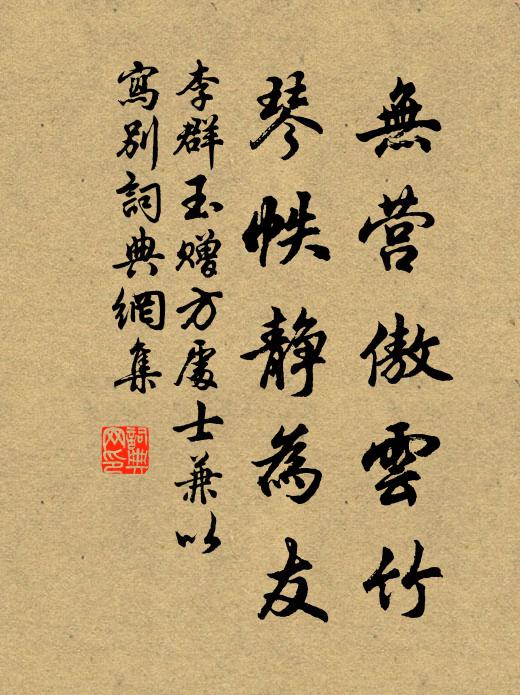 無營傲雲竹
琴帙靜為友
李群玉贈方處士兼以
寫別詞典網集
詞典
网印